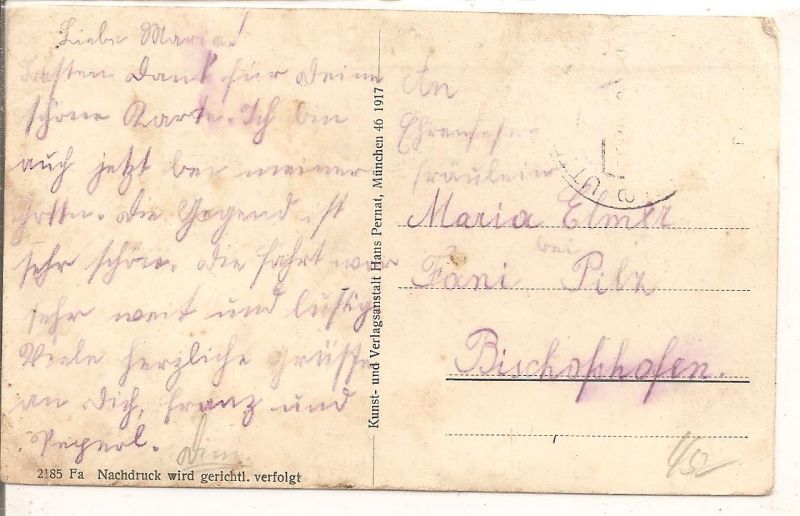 Liebe Maria!
Besten Dank für Deine
schöne Karte. Ich bin
auch jetzt bei meiner
Die Gegend ist
sehr schön. Die Fahrt war
sehr weit und lustig.
Viele herzliche Grüsse
an Dich, Franz und
Peperl.
2185 Fa Nachdruck wird gerichtl. verfolgt
Kunst- und Verlagsanstalt Hans Pernat, München 46 1917
An
fräulein
Maria Elmer
bei
Fani Pilz
Bischofshofen.